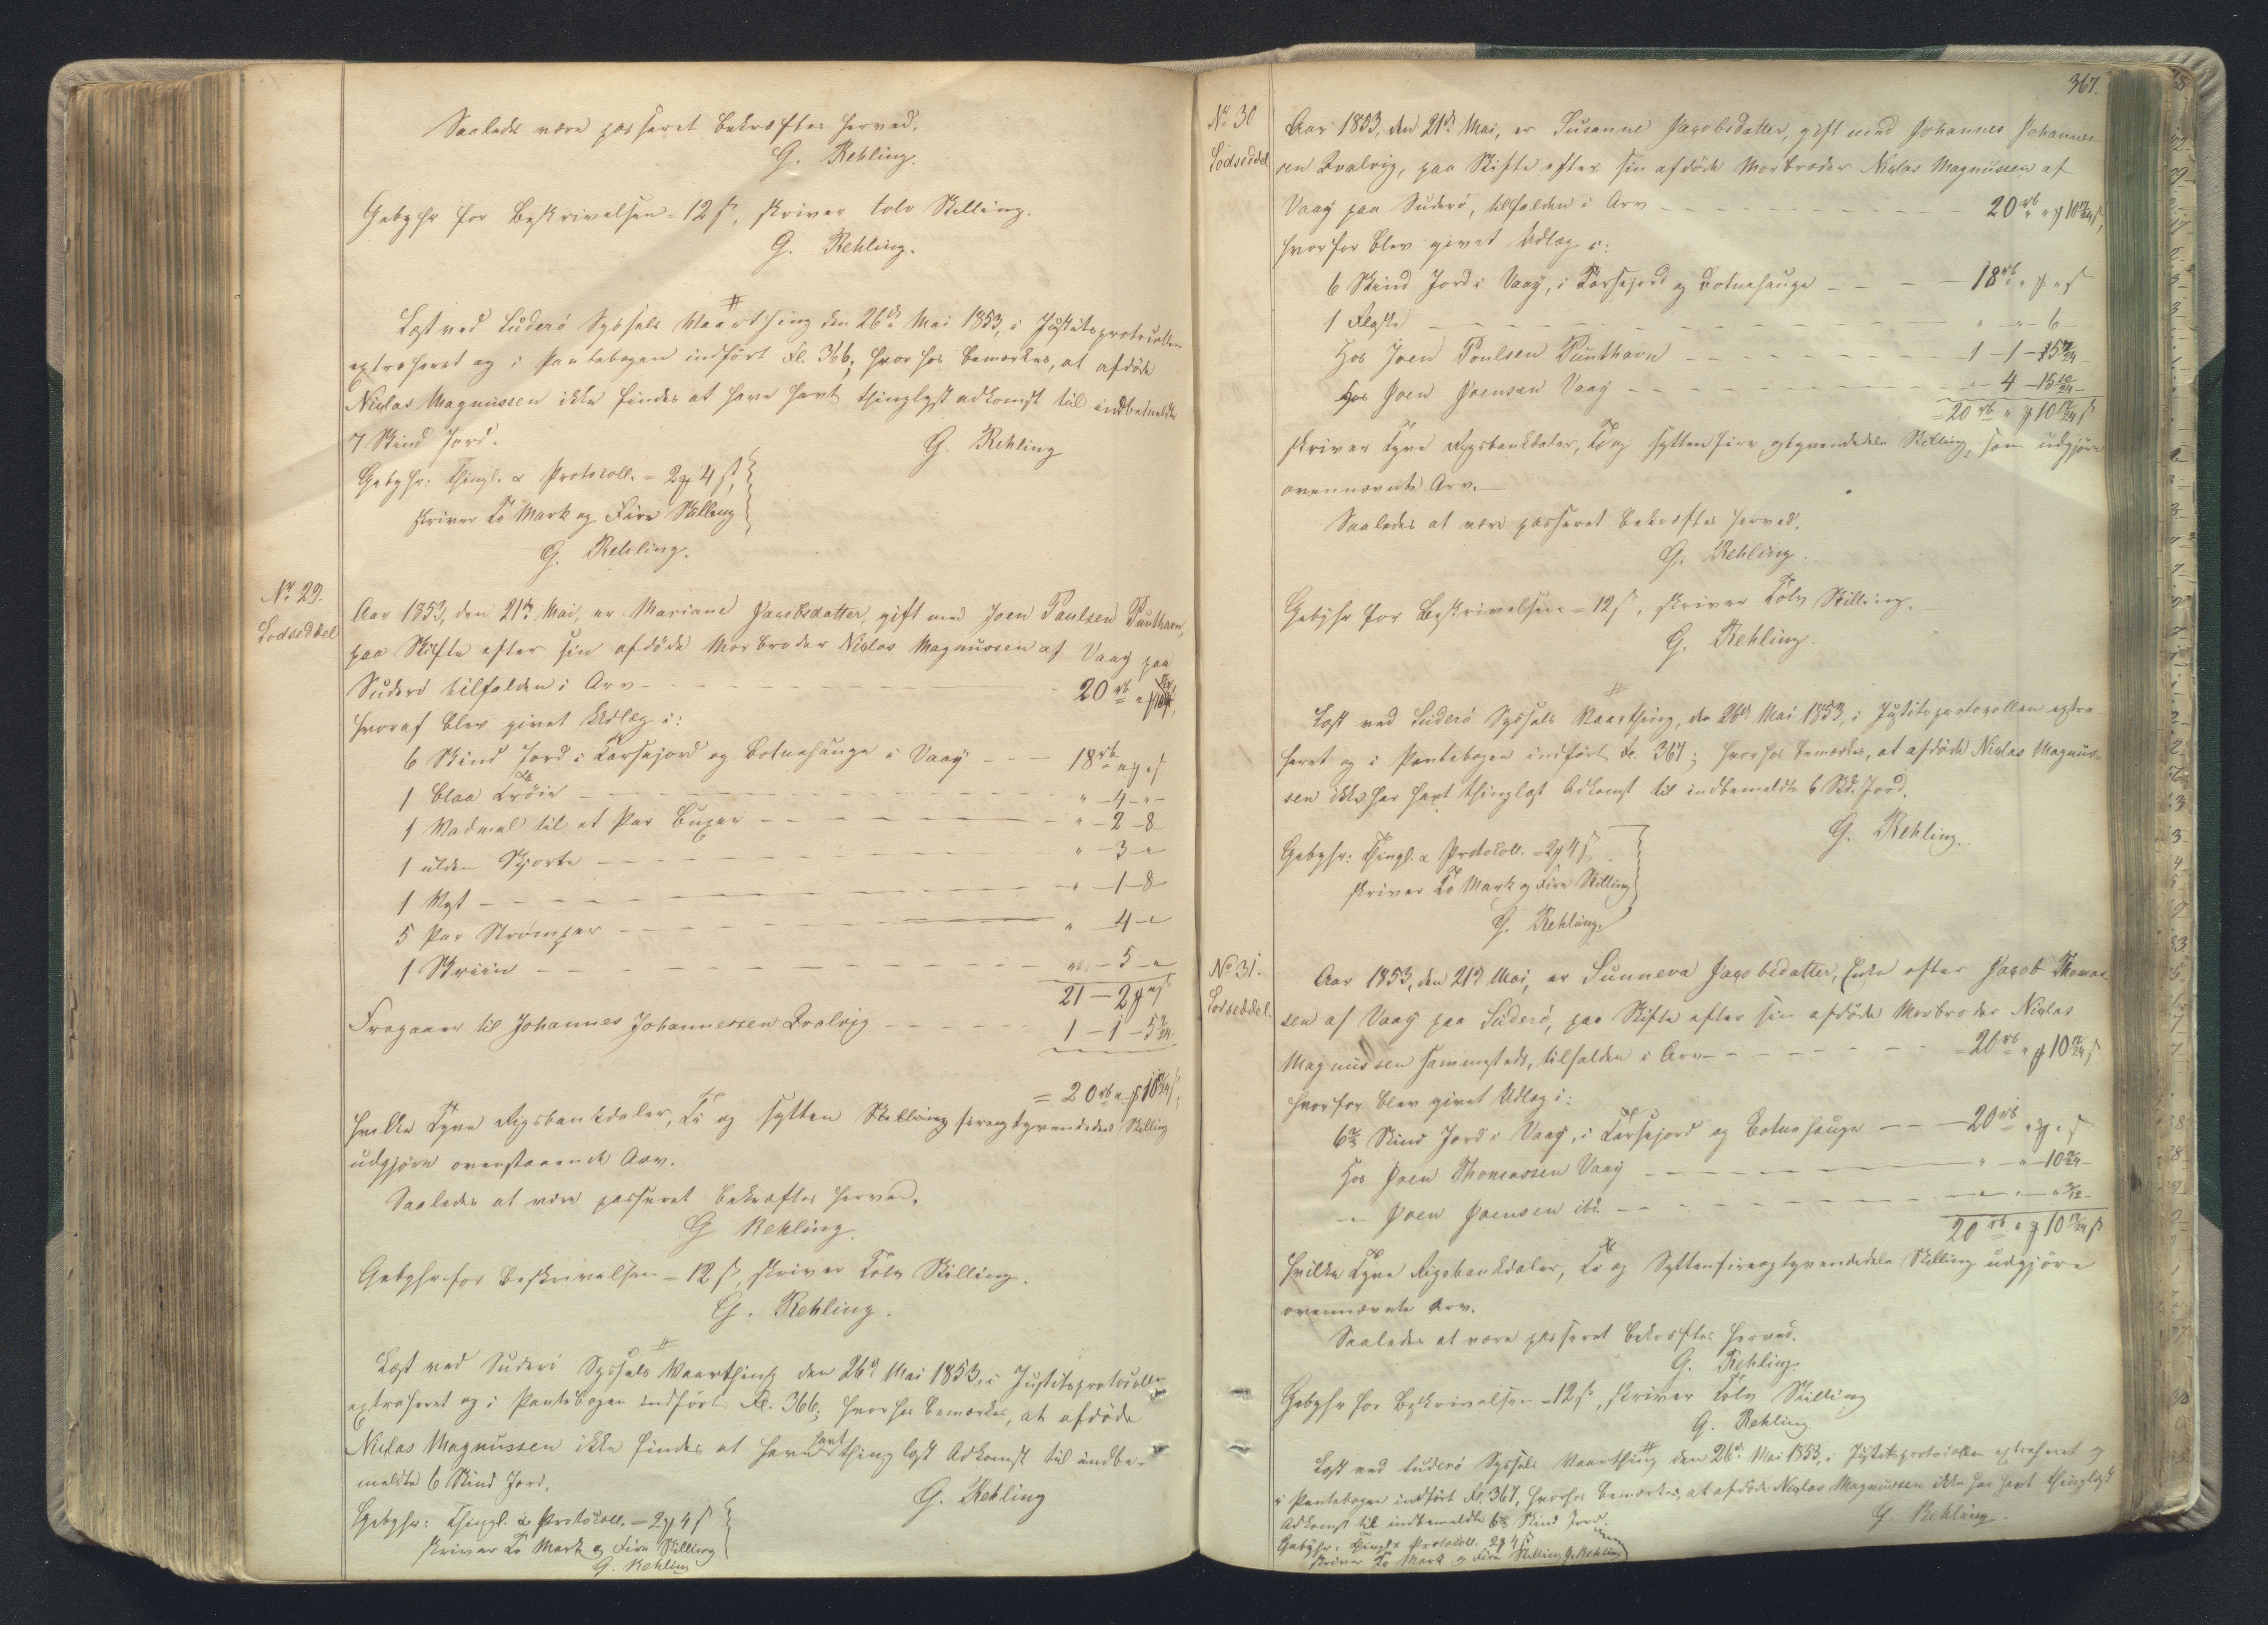 Saaledes være passeret bekræftes herved.
G. Rehling.
Gebyhr for Beskrivelsen = 12 ß, skriver tolv Skilling.
G. Rehling.
Læst ved Suderö Syssels Vaarthing den 26de Mai 1853, i Justitsprotocollen
extraheret og i Pantebogen indfört Fl. 366; hvorhos bemærkes, at afdöde
Niclas Magnussen ikke findes at have havt thinglyst Adkomst til indbemeldte
7 Skind Jord.
G. Rehling
Gebyhr: Thingl. & Protocoll. = 2 ₰ 4 ß,
skriver To Mark og Fire Skilling
G. Rehling.
No 29.
Lodseddel
Aar 1853, den 21de Mai, er Mariane Jacobsdatter, gift med Joen Poulsen Punthavn,
paa Skifte efter sin afdöde Morbroder Niclas Magnussen af Vaag paa
Suderö tilfalden i Arv - - - 20 rb " ₰ 10 17/24 ß,
hvoraf blev givet Udlæg i:
6 Skind Jord i Tarfejord og Botnehauge i Vaag - - - 18 rb " ₰ " ß
1 blaa Tröie - - - " - 4 - "
1 Vadmel til et Par Buxer - - - " - 2 - 8
1 ulden Skjorte - - - " - 3 - "
1 Vest - - - " - 1 - 8
5 Par Strömper - - - " - 4 - "
1 Skriin - - - " - 5 - "
21 - 2 ₰ " ß
Fragaaer til Johannes Johannessen Qvalvig - - - 1 - 1 - 5 7/24
= 20 rb " ₰ 10 17/24 ß,
hvilke Tyve Rigsbankdaler, Ti og sytten Skilling fireogtyvendedeel Skilling
udgjöre ovenstaaende Arv.
Saaledes at være passeret bekræftes herved.
G Rehling.
Gebyhr for Beskrivelsen = 12 ß, skriver Tolv Skilling.
G. Rehling.
Læst ved Suderö Syssels Vaarthing den 26de Mai 1853, i Justitsprotocollen
extraheret og i Pantebogen indfört Fl. 366; hvorhos bemærkes, at afdöde
Niclas Magnussen ikke findes at have havt thinglæst Adkomst til indbe-
meldte 6 Skind Jord.
G. Rehling
Gebyhr: Thingl. & Protocoll. = 2 ₰ 4 ß
skriver To Mark og Fire Skilling
G. Rehling
367.
No 30
Lodseddel
Aar 1853, den 21de Mai, er Susanne Jacobsdatter, gift med Johannes Johannes-
sen Qvalvig, paa Skifte efter sin afdöde Morbroder Niclas Magnussen af
Vaag paa Suderö, tilfalden i Arv - - - 20 rb " ₰ 10 17/24 ß,
hvorfor blev givet Udlæg i:
6 Skind Jord i Vaag, i Tarfejord og Botnehauge - - - 18 rb " ₰ " ß
1 Flaske - - - " - " - 6
Hos Joen Poulsen Punthavn - - - 1 - 1 - 5 7/24
Hos Joen Joensen Vaag - - - " - 4 - 15 10/24
= 20 rb " ₰ 10 17/24 ß
skriver Tyve Rigsbankdaler, Ti og sytten fire ogtyvendedele Skilling, som udgjöre
ovennævnte Arv.
Saaledes at være passeret bekræftes herved.
G. Rehling.
Gebyhr for Beskrivelsen = 12 ß, skriver Tolv Skilling.
G. Rehling.
Læst ved Suderö Syssels Vaarthing, den 26de Mai 1853, i Justitsprotocollen extra-
heret og i Pantebogen indfört Fl. 367; hvorhos bemærkes, at afdöde Niclas Magnus-
sen ikke har havt thinglæst Adkomst til indbemeldte 6 Skd. Jord.
G. Rehling.
Gebyhr: Thingl. & Protocoll. = 2 ₰ 4 ß,
skriver To Mark og Fire Skilling
G. Rehling.
No 31.
Lodseddel.
Aar 1853, den 21de Mai, er Sunneva Jacobsdatter, Enke efter Jacob Thomas-
sen af Vaag paa Suderö, paa Skifte efter sin afdöde Morbroder Niclas
Magnussen sammesteds, tilfalden i Arv - - - = 20 rb " ₰ 10 17/24 ß
hvorfor blev givet Udlæg i:
6 2/3 Skind Jord i Vaag, i Tarfejord og Botnehauge - - - 20 rb " ₰ " ß
Hos Joen Thomassen Vaag - - - " - " - 10
" Joen Joensen ibd. - - -
20 rb " ₰ 10 17/24 ß
hvilke Tyve Rigsbankdaler, Ti og Syttenfireogtyvendedele Skilling udgjöre
ovennævnte Arv.
Saaledes at være passeret bekræftes herved.
G. Rehling.
Gebyhr for Beskrivelsen = 12 ß, skriver Tolv Skilling
G. Rehling.
Læst ved Suderö Syssels Vaarthing den 26de Mai 1853, i Justitsprotocollen extraheret og
i Pantebogen indfört Fl. 367, hvorhos bemærkes, at afdöde Niclas Magnussen ikke har havt thinglæst
Adkomst til indbemeldte 6 2/3 Skind Jord.
G. Rehling.
Gebyhr: Thingl & Protocoll. 2 ₰ 4 ß
skriver To Mark og Fire Skilling G. Rehling